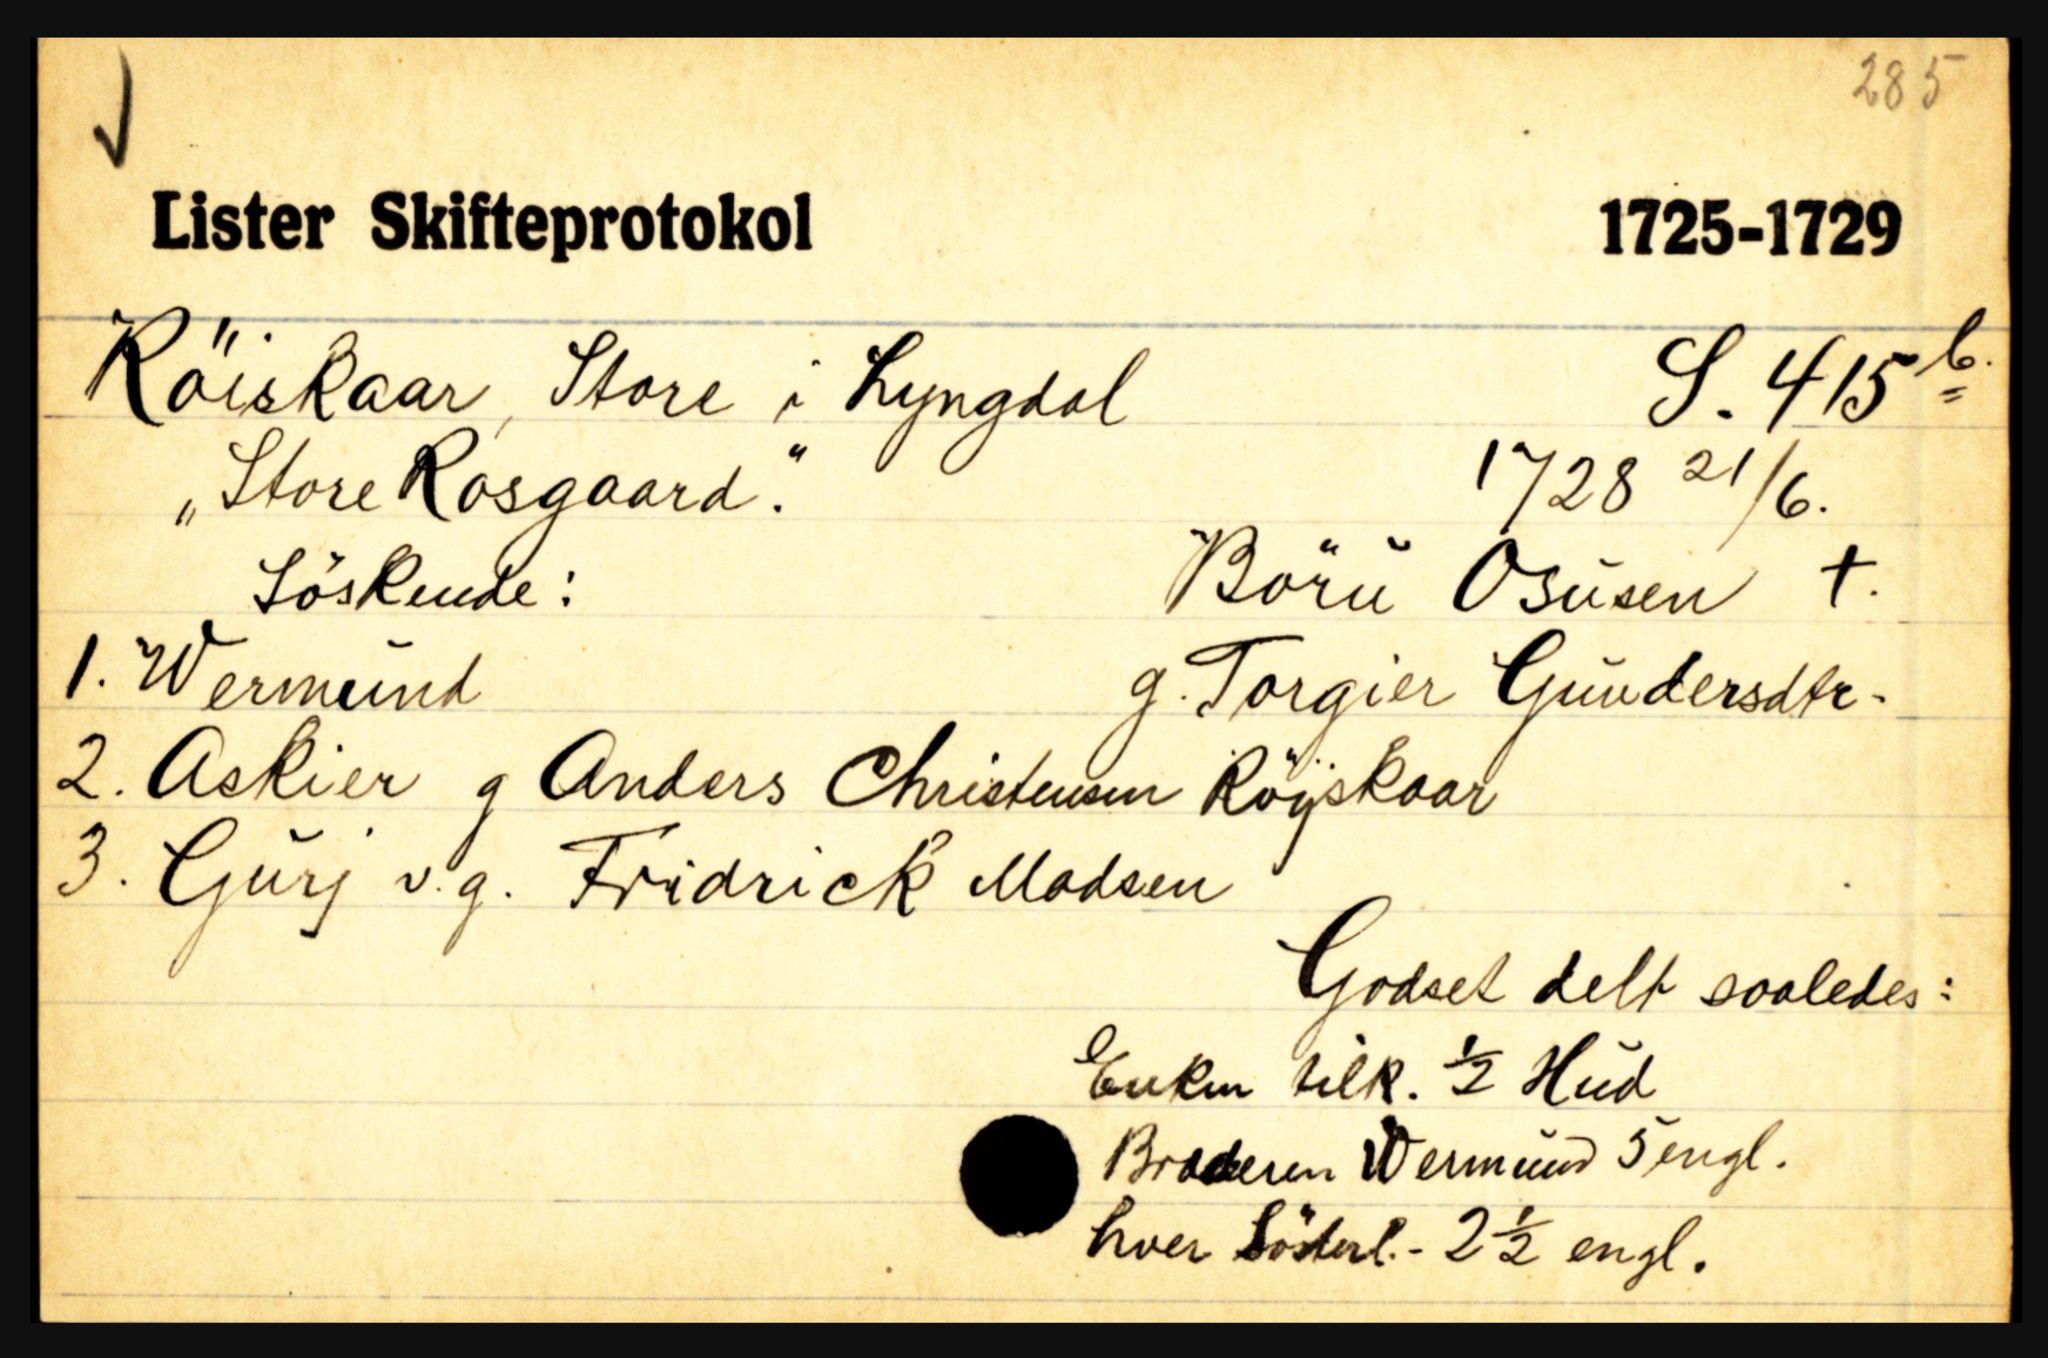 285
Lister Skifteprotokol 1725-1729
Röiskaar, Store i Lyngdal S. 415 b.
„Store Rosgaard." 1728 21/6.
Söskende: Börü Osüsen †.
1. Wermund g. Torgier Gundersdtr.
2. Askier g Anders Christensen Röyskaar
3. Gurj v. g. Fridrick Madsen
Godset delt saaledes:
Enken tilk. ½ Hud
Broderen Wermund 5 engl.
hver - 2½ engl.